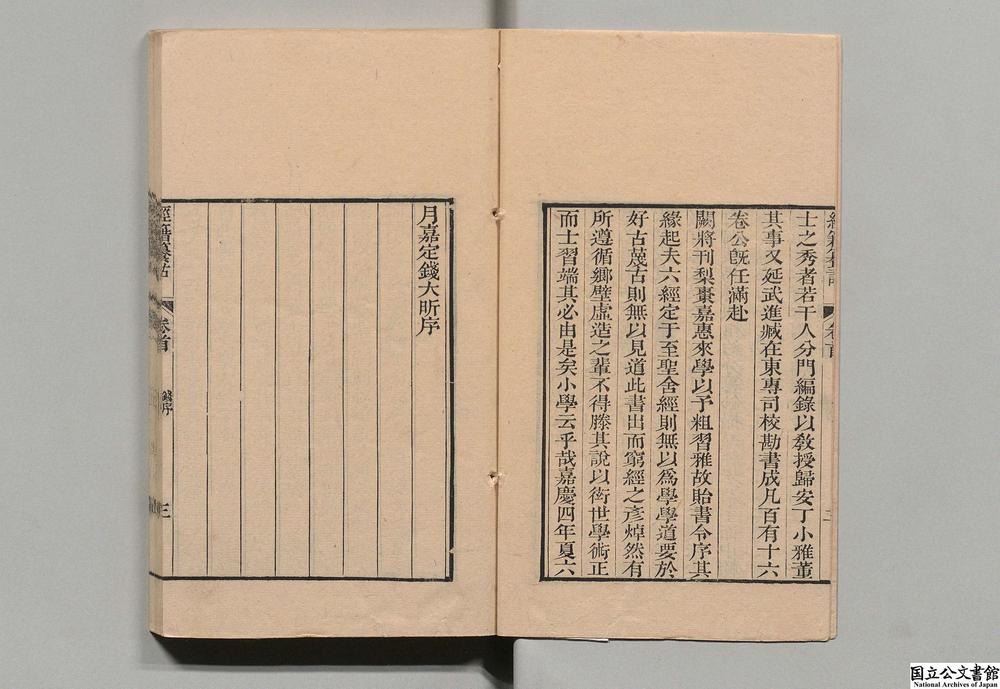 士之秀者若干人分門編錄以敎授歸安丁小雅董
其事又延武進臧在東專司校勘書成凡百有十六
卷公旣任滿赴
闕將刊梨棗嘉惠來學以予粗習雅故貽書令序其
緣起夫六經定于至聖舍經則無以爲學學道要於
好古蔑古則無以見道此書出而窮經之彥焯然有
所遵循鄉壁虛造之輩不得滕其說以衒世學術正
而士習端其必由是矣小學云乎哉嘉慶四年夏六
月嘉定錢大昕序
經籍籑詁 卷首 錢序 三
国立公文書館
National Archives of Japan